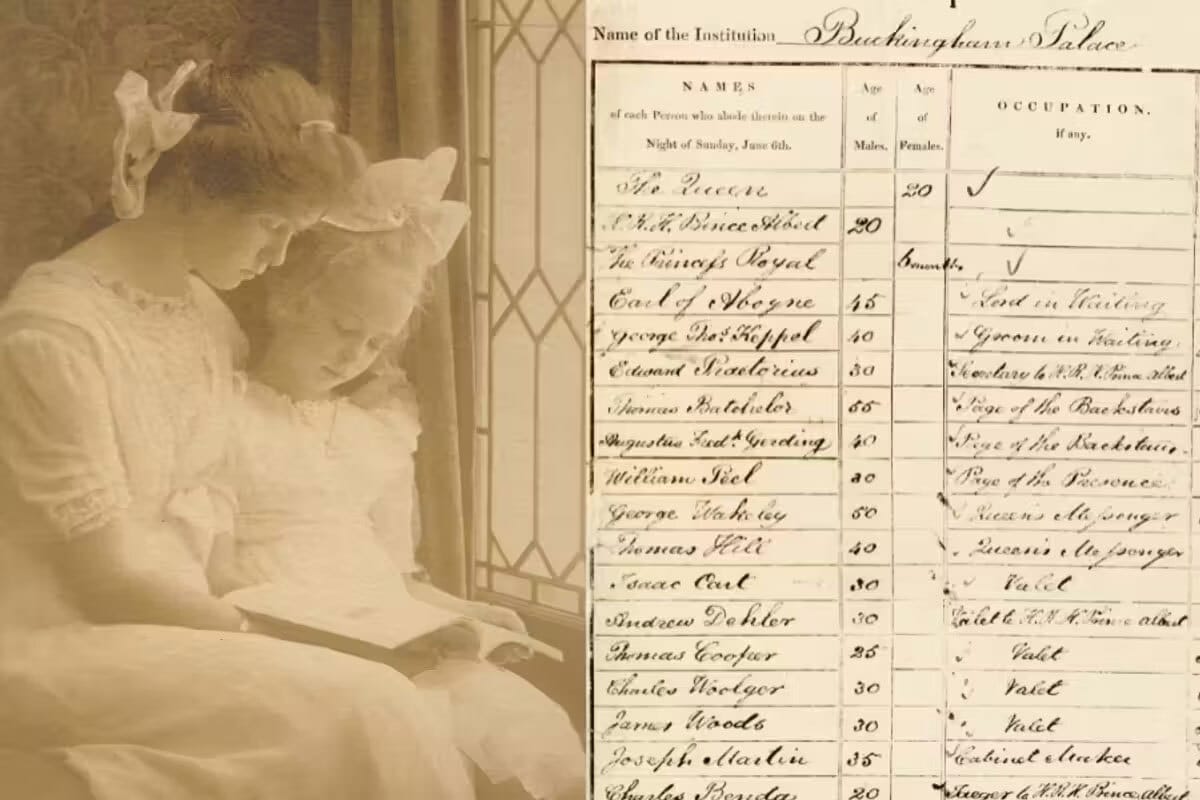 Name of the Institution Buckingham Palace
NAMES
of each Person who abode therein on the
Night of Sunday, June 6th.
Age
of
Males.
Age
of
Females.
OCCUPATION.
if any.
The Queen 20
H.R.H. Prince Albert 20
The Princess Royal 6 months
Earl of Aboyne 45 Lord in Waiting
George Thos. Keppel 40 Groom in Waiting
Edward Praetorius 30 Secretary to H.R.H. Prince Albert
Thomas Batchelor 55 Page of the Backstairs
Augustus Fredk. Gerding 40 Page of the Backstairs
William Peel 30 Page of the Presence
George Wakeley 50 Queen's Messenger
Thomas Hill 40 Queen's Messenger
Isaac Cart 30 Valet
Andrew Dehler 30 Valet to H.R.H. Prince Albert
Thomas Cooper 25 Valet
Charles Woolger 30 Valet
James Woods 30 Valet
Joseph Martin 35 Cabinet Maker
Charles Benda 20 Jaeger to H.R.H. Prince Albert